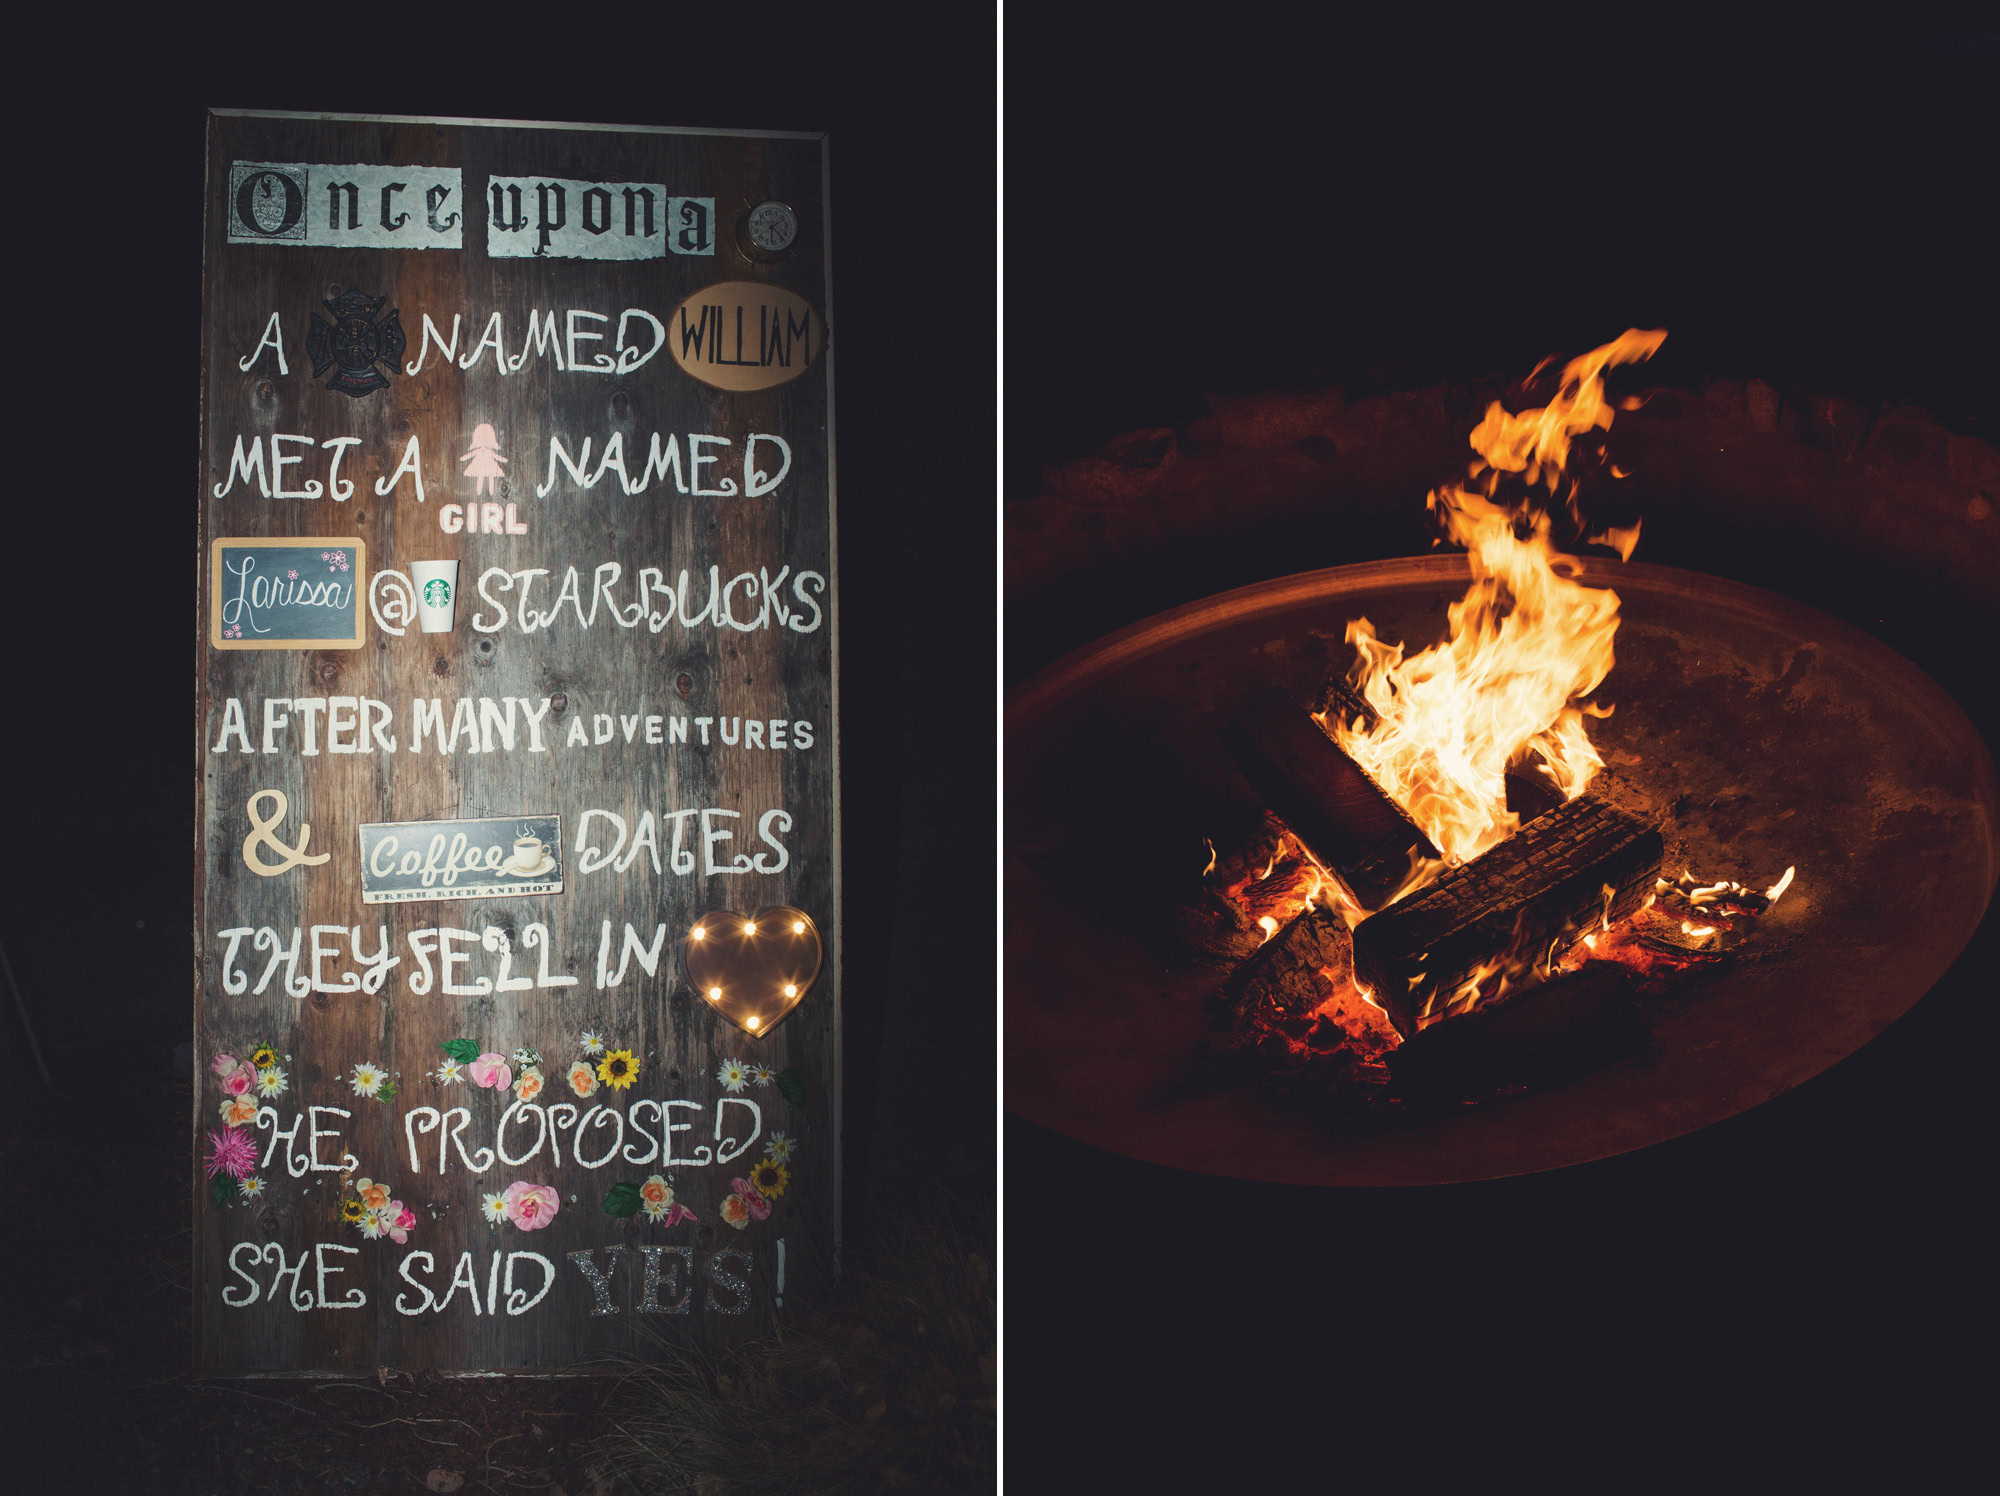 Once upon a
A FIREMAN NAMED WILLIAM
MET A NAMED
GIRL
Larissa @ STARBUCKS
AFTER MANY ADVENTURES
& Coffee DATES
FRESH, RICH, AND HOT
THEY FELL IN
HE PROPOSED
SHE SAID YES!